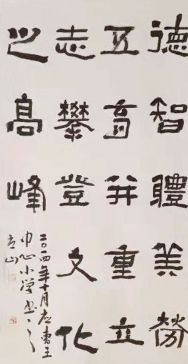 德智體美勞
五育并重立
志攀登文化
之高峰
二〇一四年十月應曹王
中心小學書之